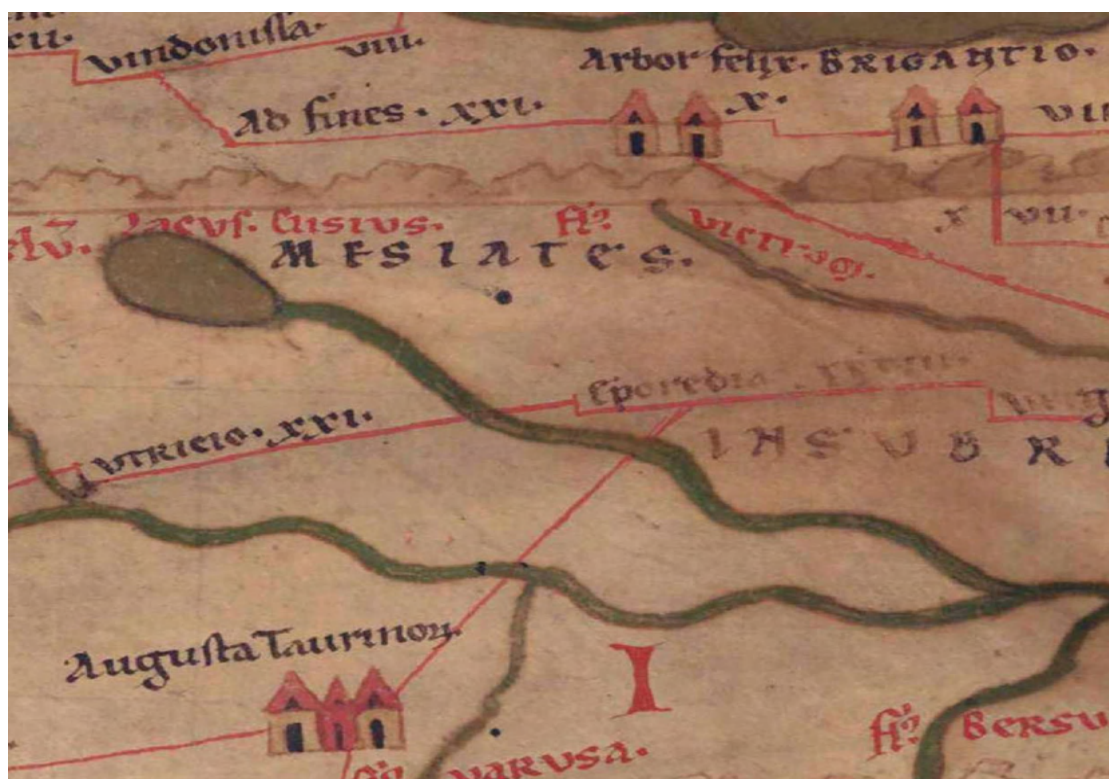 cii.
Vindonissa. viii.
Arbor felix. BRIGANTIO.
Ad fines. xxi. x. vii
Lacus. Clisius. fl.
MESIATES. x vii.
Eporedia
Utricio. xxi.
INSUBR
Augusta Taurinor.
I
fl. BERSU
fl. VARUSA.